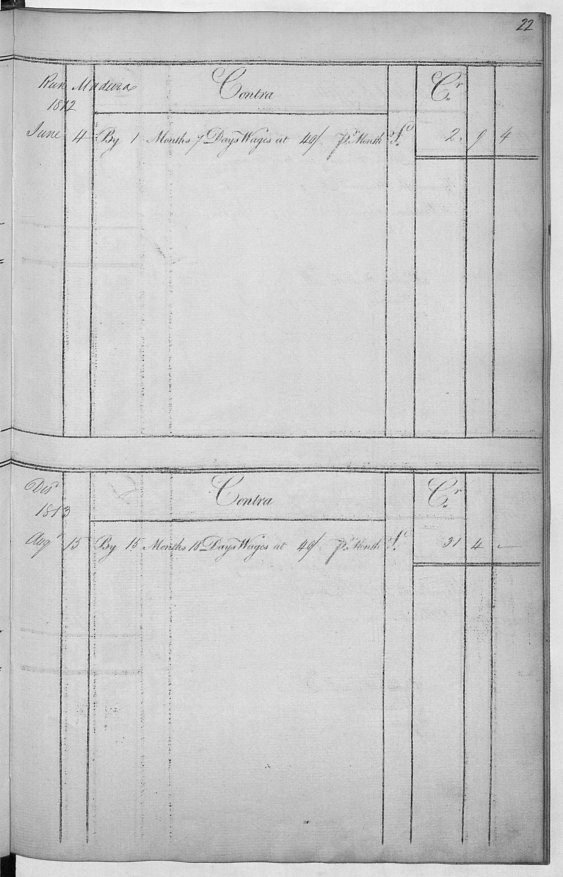 22
Run Madeira Contra Cr
1812
June 4 By 1 Months 7 Days Wages at 40/ pr Month £ 2. 9 4
Disd Contra Cr
1813
Augt 15 By 15 Months 18 Days Wages at 40/ pr Month £ 31 4 -